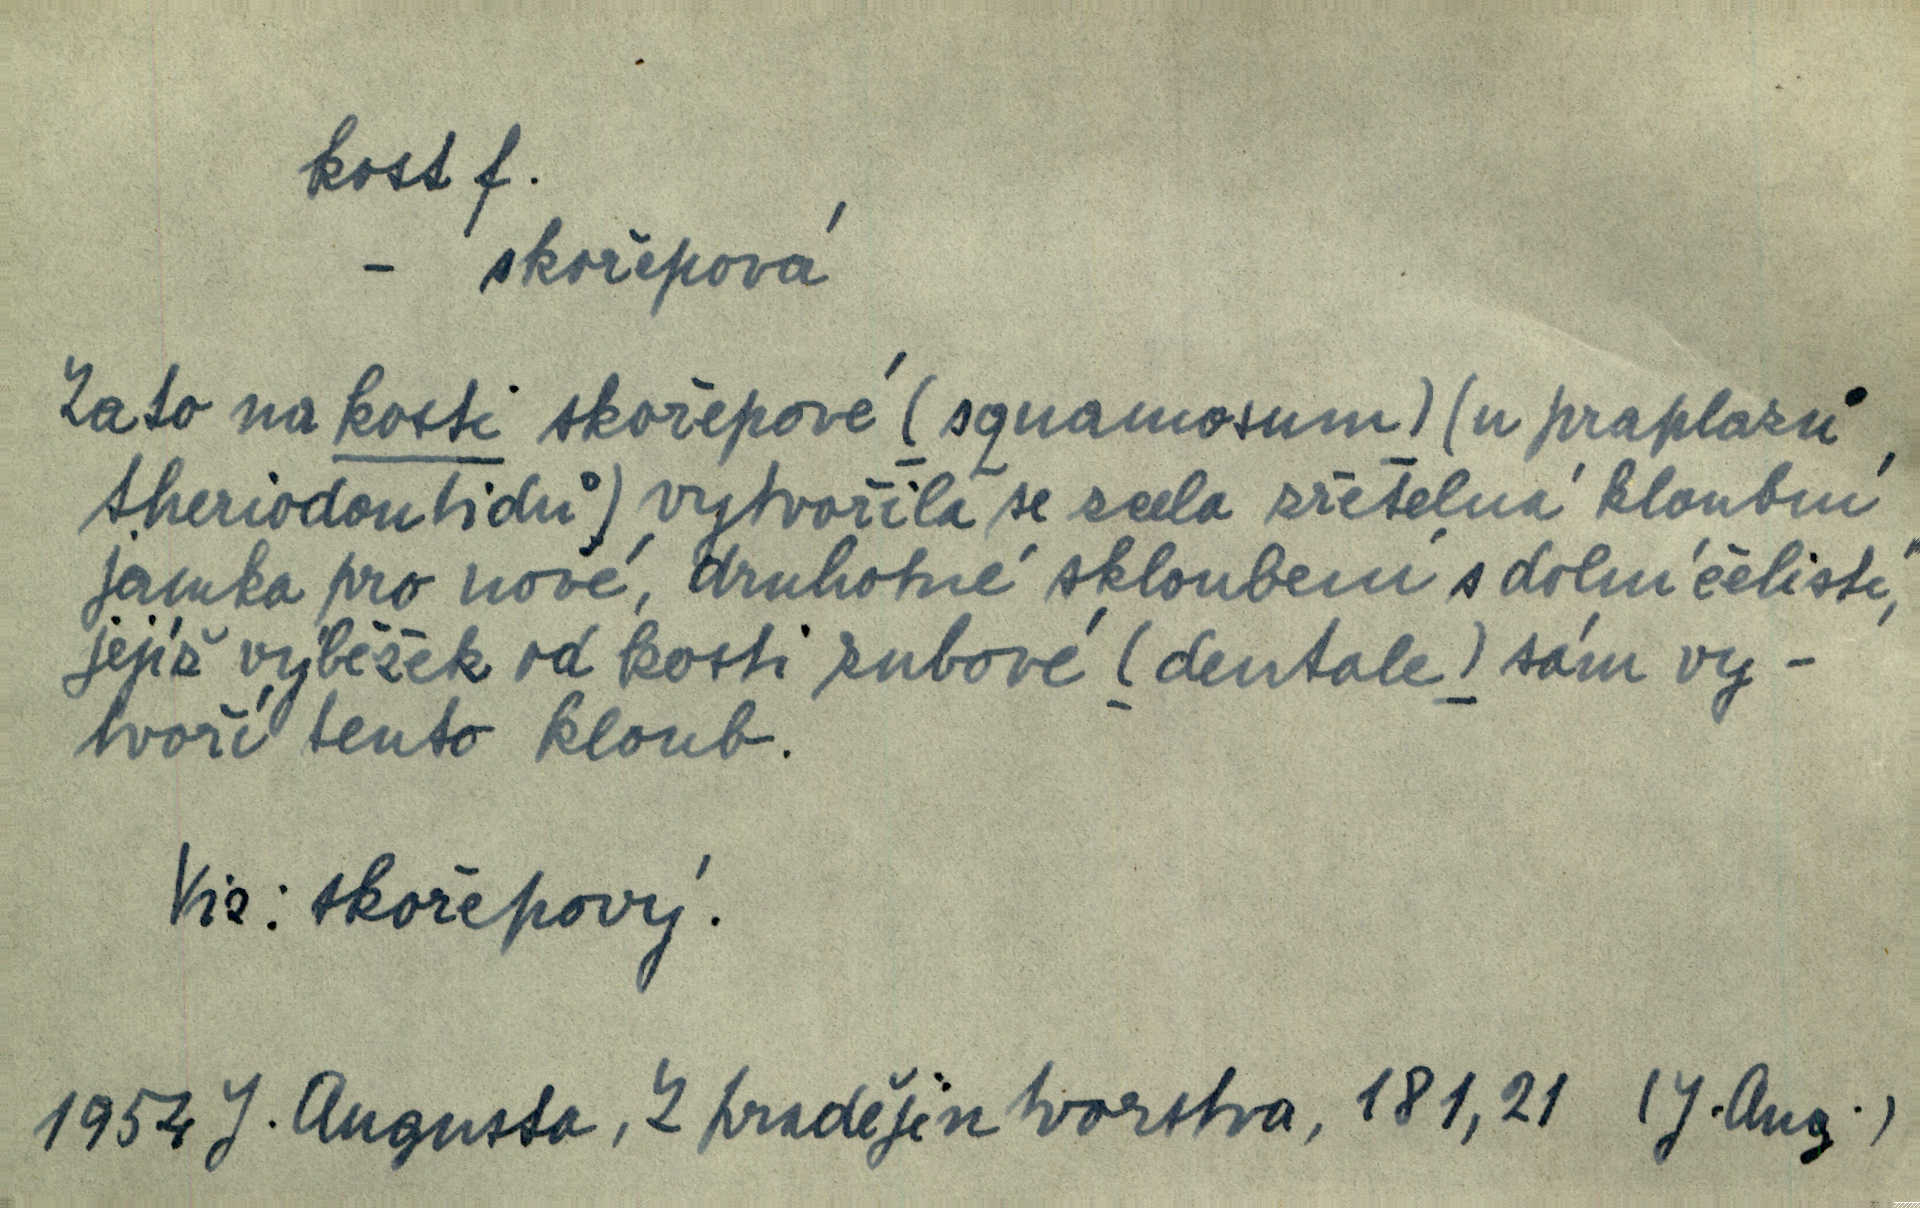 kost f.
- skořepová
Zato na kosti skořepové (squamosum) (u praplazů,
theriodontidů) vytvořila se zcela zřetelná kloubní
jamka pro nové, druhotné skloubení s dolní čelistí,
jejíž výběžek od kosti zubové (dentale) sám vy-
tvoří tento kloub.
Viz: skořepový.
1954 J. Augusta, Z pradějin tvorstva, 181, 21 (J. Aug.)